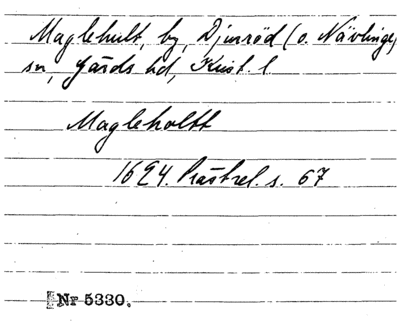 Maglehult, by, Djurröd (o. Nävlinge)
sn, Gärds hd, Krist. l.
Magleholtt
1624. Prästrel. s. 67
Nr 5330.